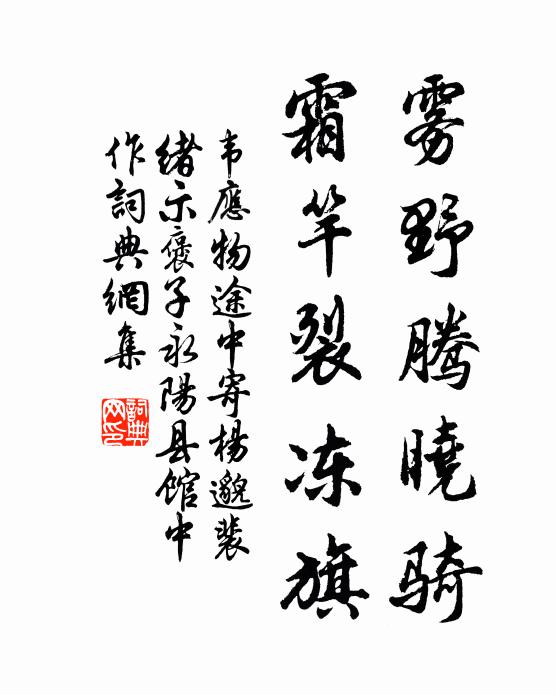 雾野腾晓骑
霜竿裂冻旗
韦應物途中寄楊邈裴
绪示褒子永陽县馆中
作詞典網集
詞典網印